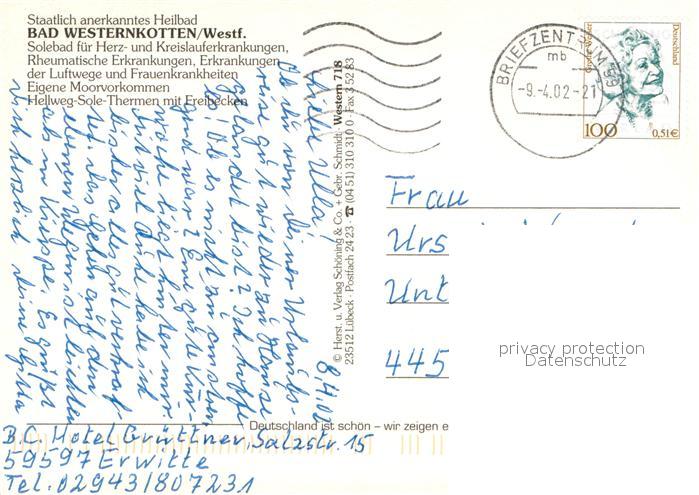 Staatlich anerkanntes Heilbad
BAD WESTERNKOTTEN/Westf.
Solebad für Herz- und Kreislauferkrankungen,
Rheumatische Erkrankungen, Erkrankungen
der Luftwege und Frauenkrankheiten
Eigene Moorvorkommen
Hellweg-Sole-Thermen mit Freibecken
8.4.02
Liebe Ulla,
Ob du von Deiner Urlaubs-
reise gut wieder zu Hause
gelandet bist? Ich hoffe
es. Ob es nicht zu anstren-
gend war? Eine gute Kur-
woche liegt hinter mir
Mit viel habe ich
bisher alles gut vertragen
bei das Gehen auf den
ebenen Wegen ist leichter
als im Es grüßt
Dich herzlich Deine
© Herst. u. Verlag Schöning & Co. + Gebr. Schmidt · Western 718
23512 Lübeck · Postfach 24 23 · ☎ (04 51) 310 310 0 · Fax 3 52 83
Deutschland ist schön – wir zeigen e
B.C. Hotel Grüttner, Salzstr. 15
59597 Erwitte
Tel. 02943/807231
BRIEFZENTRUM
mb
-9.-4.02-21
Deutschland
100
0,51€
Frau
Urs
Unt
445
privacy protection
Datenschutz